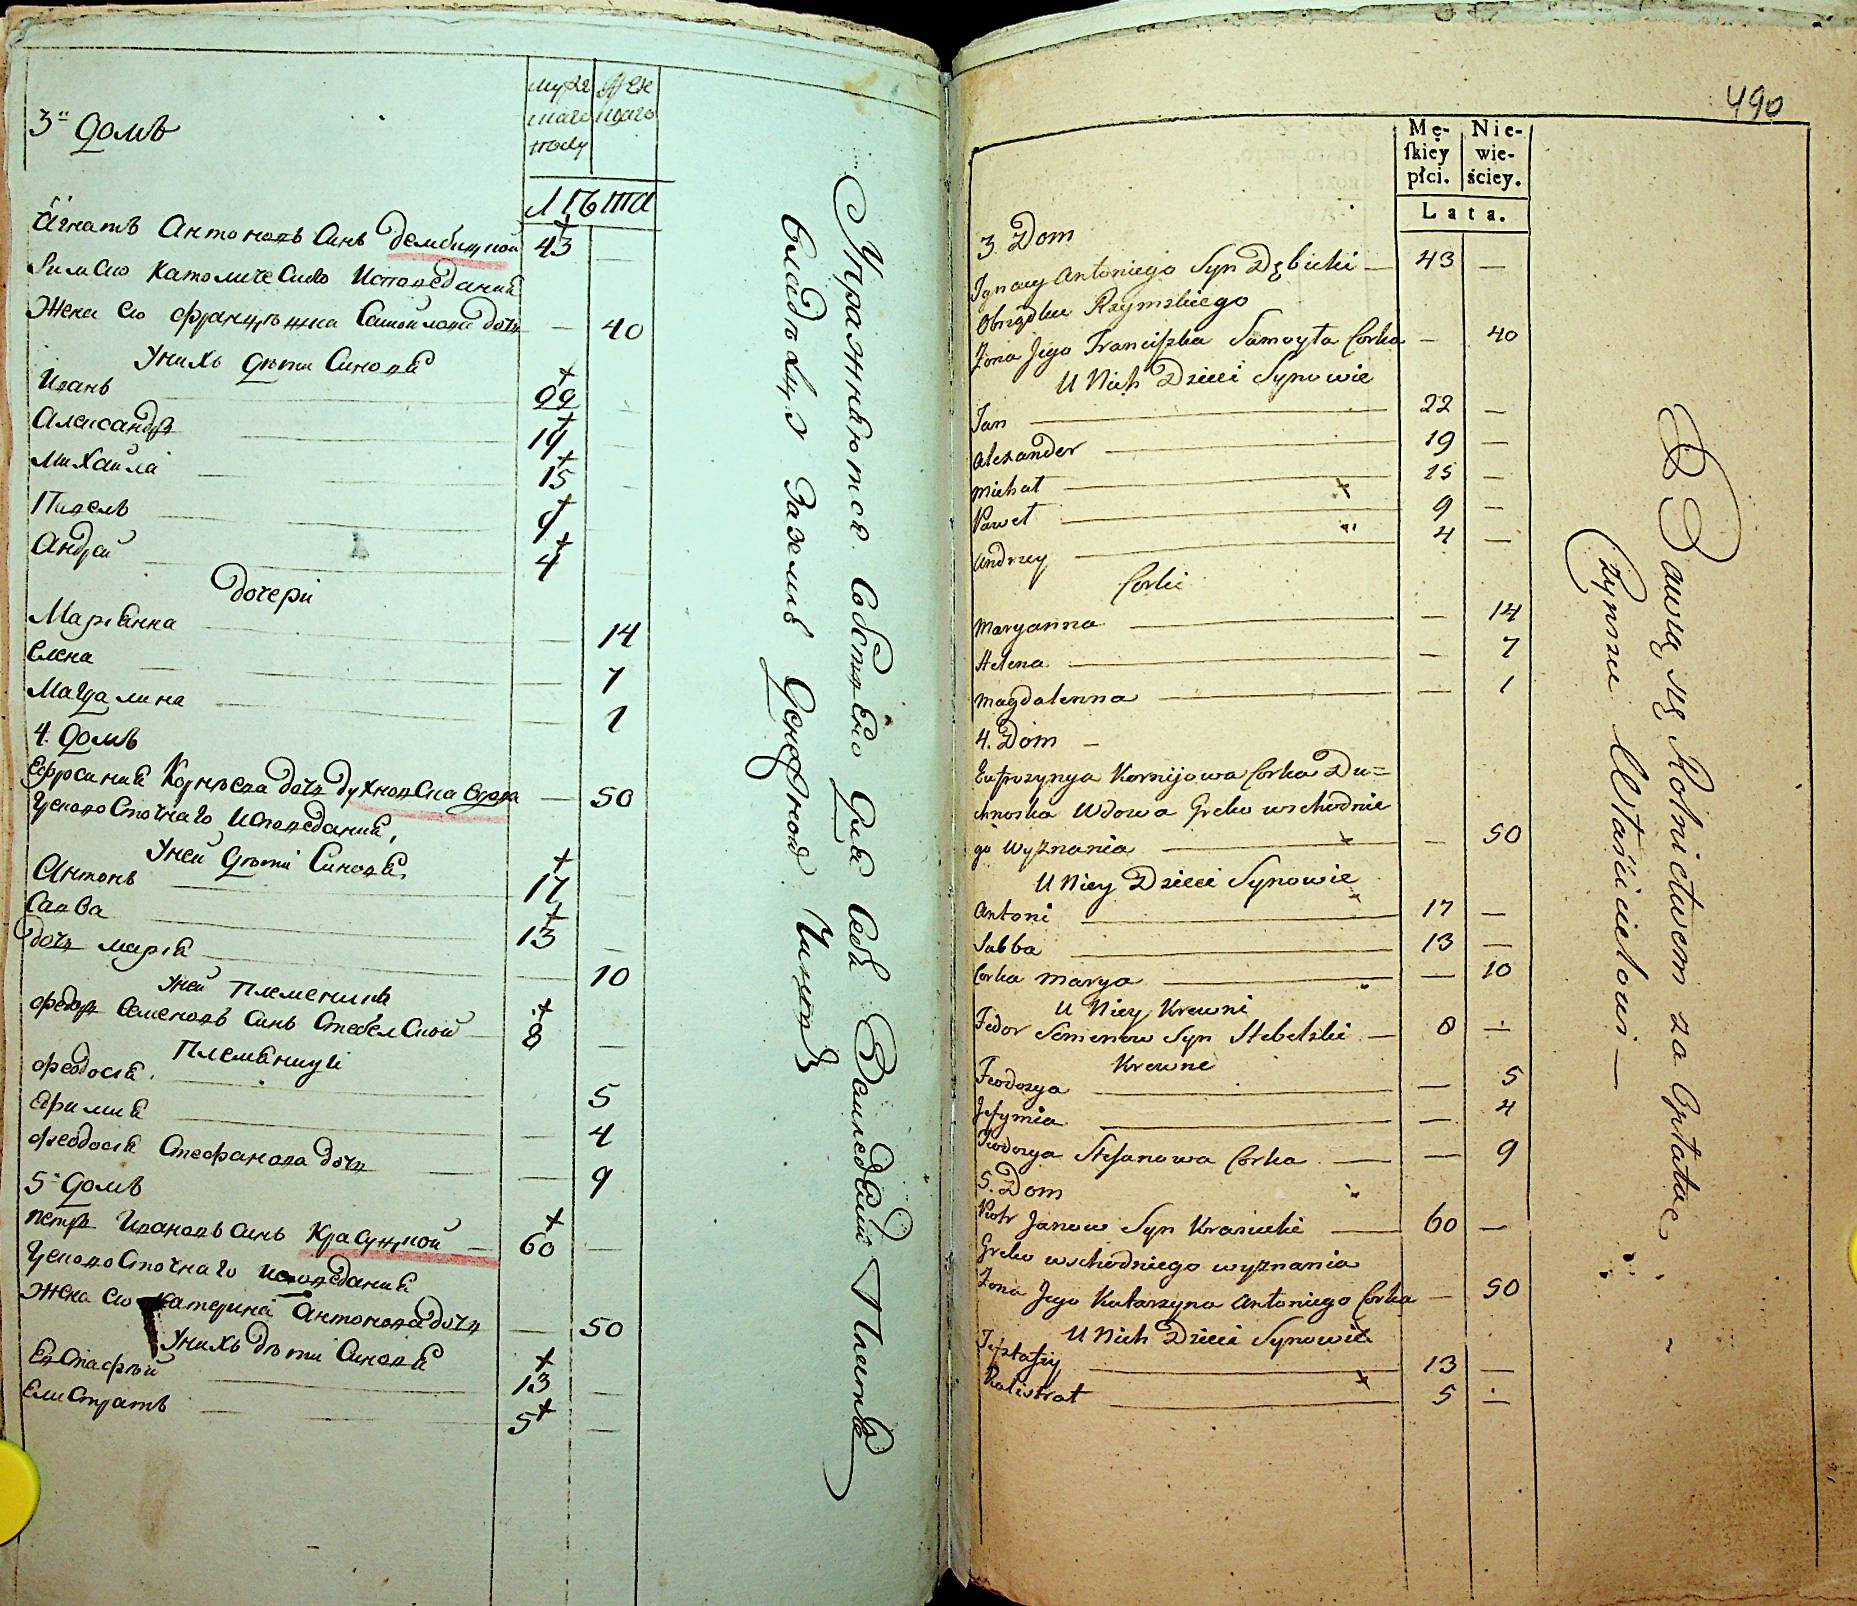 3й домъ
муже
жен
скаго
скаго
полу
лѣта
Игнатъ Антоновъ синъ Дембицкой 43 —
Римско католическо исповедания
Жена его Францѣшка Самойлова дочь — 40
У нихъ дѣти синовя
Иванъ 22 —
Александръ 19 —
Михайла 15 —
Павелъ 9 —
Андрей 4
дочери
Мариянна — 14
Елена — 7
Магдалина — 1
4. домъ
Ефросиния Корнѣева дочь Духновска вдова — 50
Грековосточнаго исповедания,
У ней дѣти Синовя
Антонъ 17 —
Савва 13 —
дочь Мария — 10
У ней племеникъ
Федоръ Семеновъ синъ Стебелской 8 —
Племяницѣ
Феодосия 5
Ефимия — 4
Феодосия Стефанова дочь — 9
5й домъ
Петръ Ивановъ синъ Красуцкой 60 —
Грековосточнаго исповедания
Жена его Катерина Антонова дочь — 50
У нихъ дѣти Синовя
Евстафѣй 13 —
Елистратъ 5 —
Упражняются собственно для себя Земледелием Платя
владельцу за земле Чиншъ
490
Mę-
skiey
płci.
Nie-
wie-
ściey.
Lata.
3. Dom
Ignacy Antoniego Syn Dębicki — 43 —
Obrządku Rzymskiego
Żona Jego Franciszka Samoyła Corka — 40
U Nich Dzieci Synowie
Jan 22 —
Alexander 19 —
Michał 15 —
Paweł 9 —
Andrzey 4 —
Corki
Maryanna — 14
Helena — 7
Magdalenna — 1
4. Dom —
Eufrozynya Kornijowa Corka Du=
chnoska Wdowa Greko wschodnie
go Wyznania — 50
U Niey Dzieci Synowie
Antoni 17 —
Sabba 13 —
Corka Marya — 10
U Niey Krewni
Fedor Semenow Syn Stebelski — 8 —
Krewne
Feodozya — 5
Jefymia — 4
Feodozya Stefanowa Corka — 9
5. Dom
Piotr Janow Syn Krasucki 60 —
Greko wschodniego wyznania
Żona Jego Katarzyna Antoniego Corka — 50
U Nich Dzieci Synowie
Jefstafiy 13 —
Kalistrat 5 —
Bawią się Rolnictwem za Opłatą
Czynszu Właścicielowi —